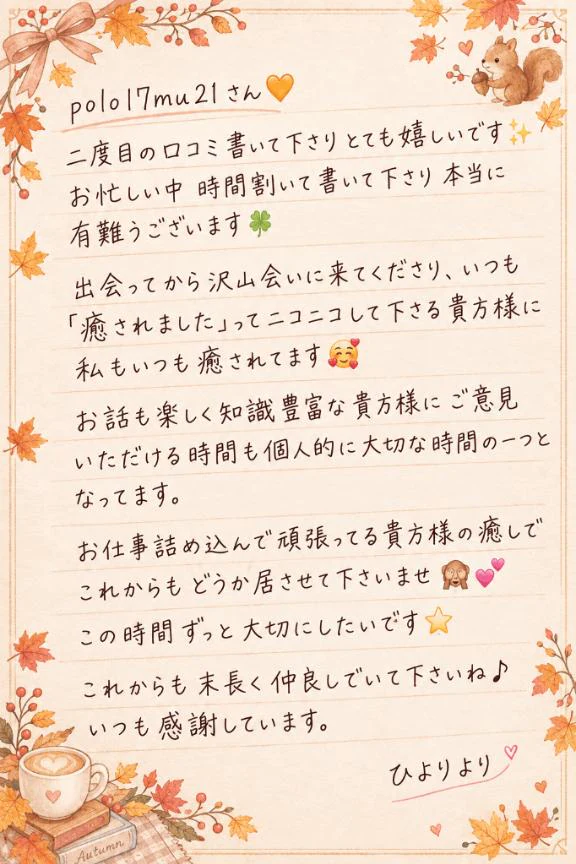 polo17mu21さん🧡
二度目の口コミ書いて下さりとても嬉しいです✨
お忙しい中 時間割いて書いて下さり 本当に
有難うございます🍀
出会ってから沢山会いに来てくださり、いつも
「癒されました」ってニコニコして下さる貴方様に
私もいつも癒されてます🥰
お話も楽しく知識豊富な貴方様にご意見
いただける時間も個人的に大切な時間の一つと
なってます。
お仕事詰め込んで頑張ってる貴方様の癒しで
これからもどうか居させて下さいませ🙈💕
この時間ずっと大切にしたいです⭐
これからも末長く仲良しでいて下さいね♪
いつも感謝しています。
ひよりより♡
Autumn